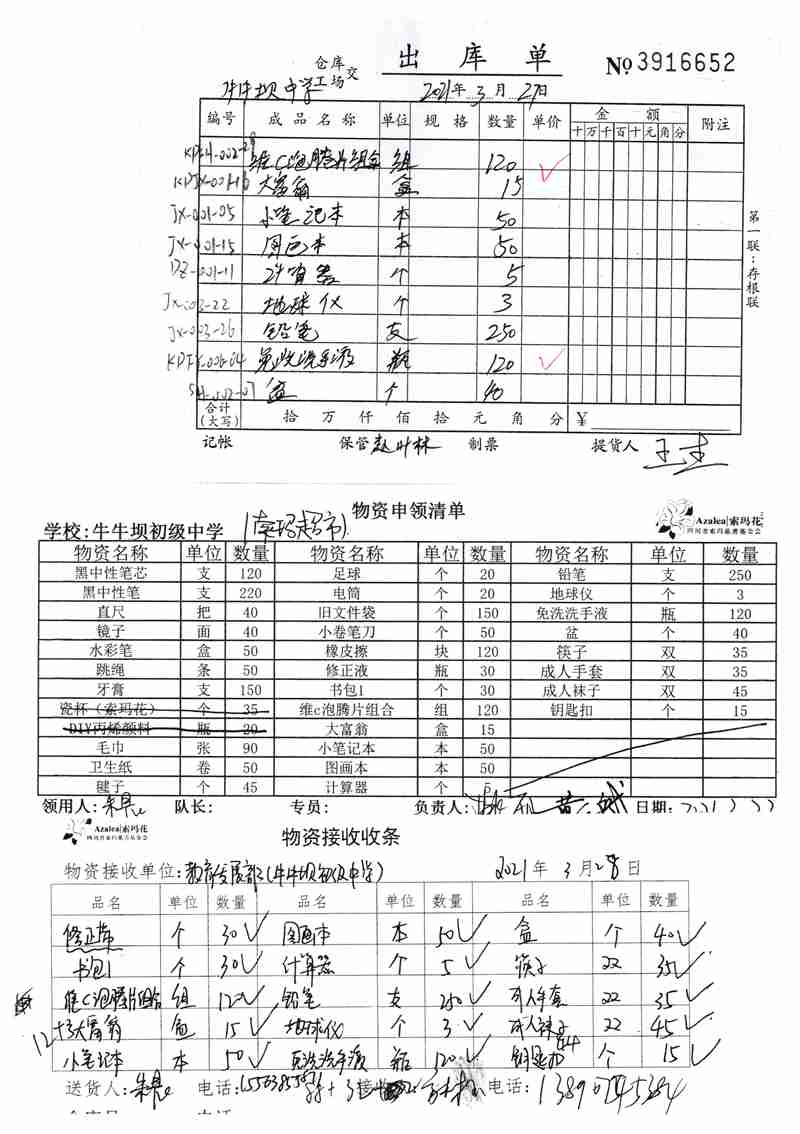 出 库 单
№ 3916652
仓库
工场 交
牛牛坝中学
2021年 3 月 27日
编号 成 品 名 称 单位 规 格 数量 单价 金 额 附注
十 万 千 百 十 元 角 分
维C泡腾片组合 组 120
大富翁 盒 15
JX-001-05 小笔记本 本 50
JX-001-15 图画本 本 50
DZ-001-11 计算器 个 5
JX-003-22 地球仪 个 3
JX-003-26 铅笔 支 250
免收洗手液 瓶 120
盆 个 40
第一联：存根联
合计
(大写) 拾 万 仟 佰 拾 元 角 分 ¥
记帐 保管 制票 提货人
物资申领清单
Azalea|索玛花
四川省索玛慈善基金会
学校:牛牛坝初级中学 (索玛超市)
物资名称 单位 数量 物资名称 单位 数量 物资名称 单位 数量
黑中性笔芯 支 120 足球 个 20 铅笔 支 250
黑中性笔 支 220 电筒 个 20 地球仪 个 3
直尺 把 40 旧文件袋 个 150 免洗洗手液 瓶 120
镜子 面 40 小卷笔刀 个 50 盆 个 40
水彩笔 盒 50 橡皮擦 块 120 筷子 双 35
跳绳 条 50 修正液 瓶 30 成人手套 双 35
牙膏 支 150 书包1 个 30 成人袜子 双 45
瓷杯（索玛花） 个 35 维c泡腾片组合 组 120 钥匙扣 个 15
DIY丙烯颜料 瓶 20 大富翁 盒 15
毛巾 张 90 小笔记本 本 50
卫生纸 卷 50 图画本 本 50
毽子 个 45 计算器 个 5
领用人: 队长: 专员: 负责人: 日期:
Azalea|索玛花
四川省索玛慈善基金会
物资接收收条
物资接收单位:教育发展部(牛牛坝初级中学) 2021年 3月28日
品名 单位 数量 品名 单位 数量 品名 单位 数量
修正带 个 30 图画本 本 50 盆 个 40
书包1 个 30 计算器 个 5 筷子 双 35
维C泡腾片组合 组 120 铅笔 支 250 成人手套 双 35
大富翁 盒 15 地球仪 个 3 成人袜子 双 45
小笔记本 本 50 免洗洗手液 瓶 120 钥匙扣 个 15
送货人: 电话: 接 电话: